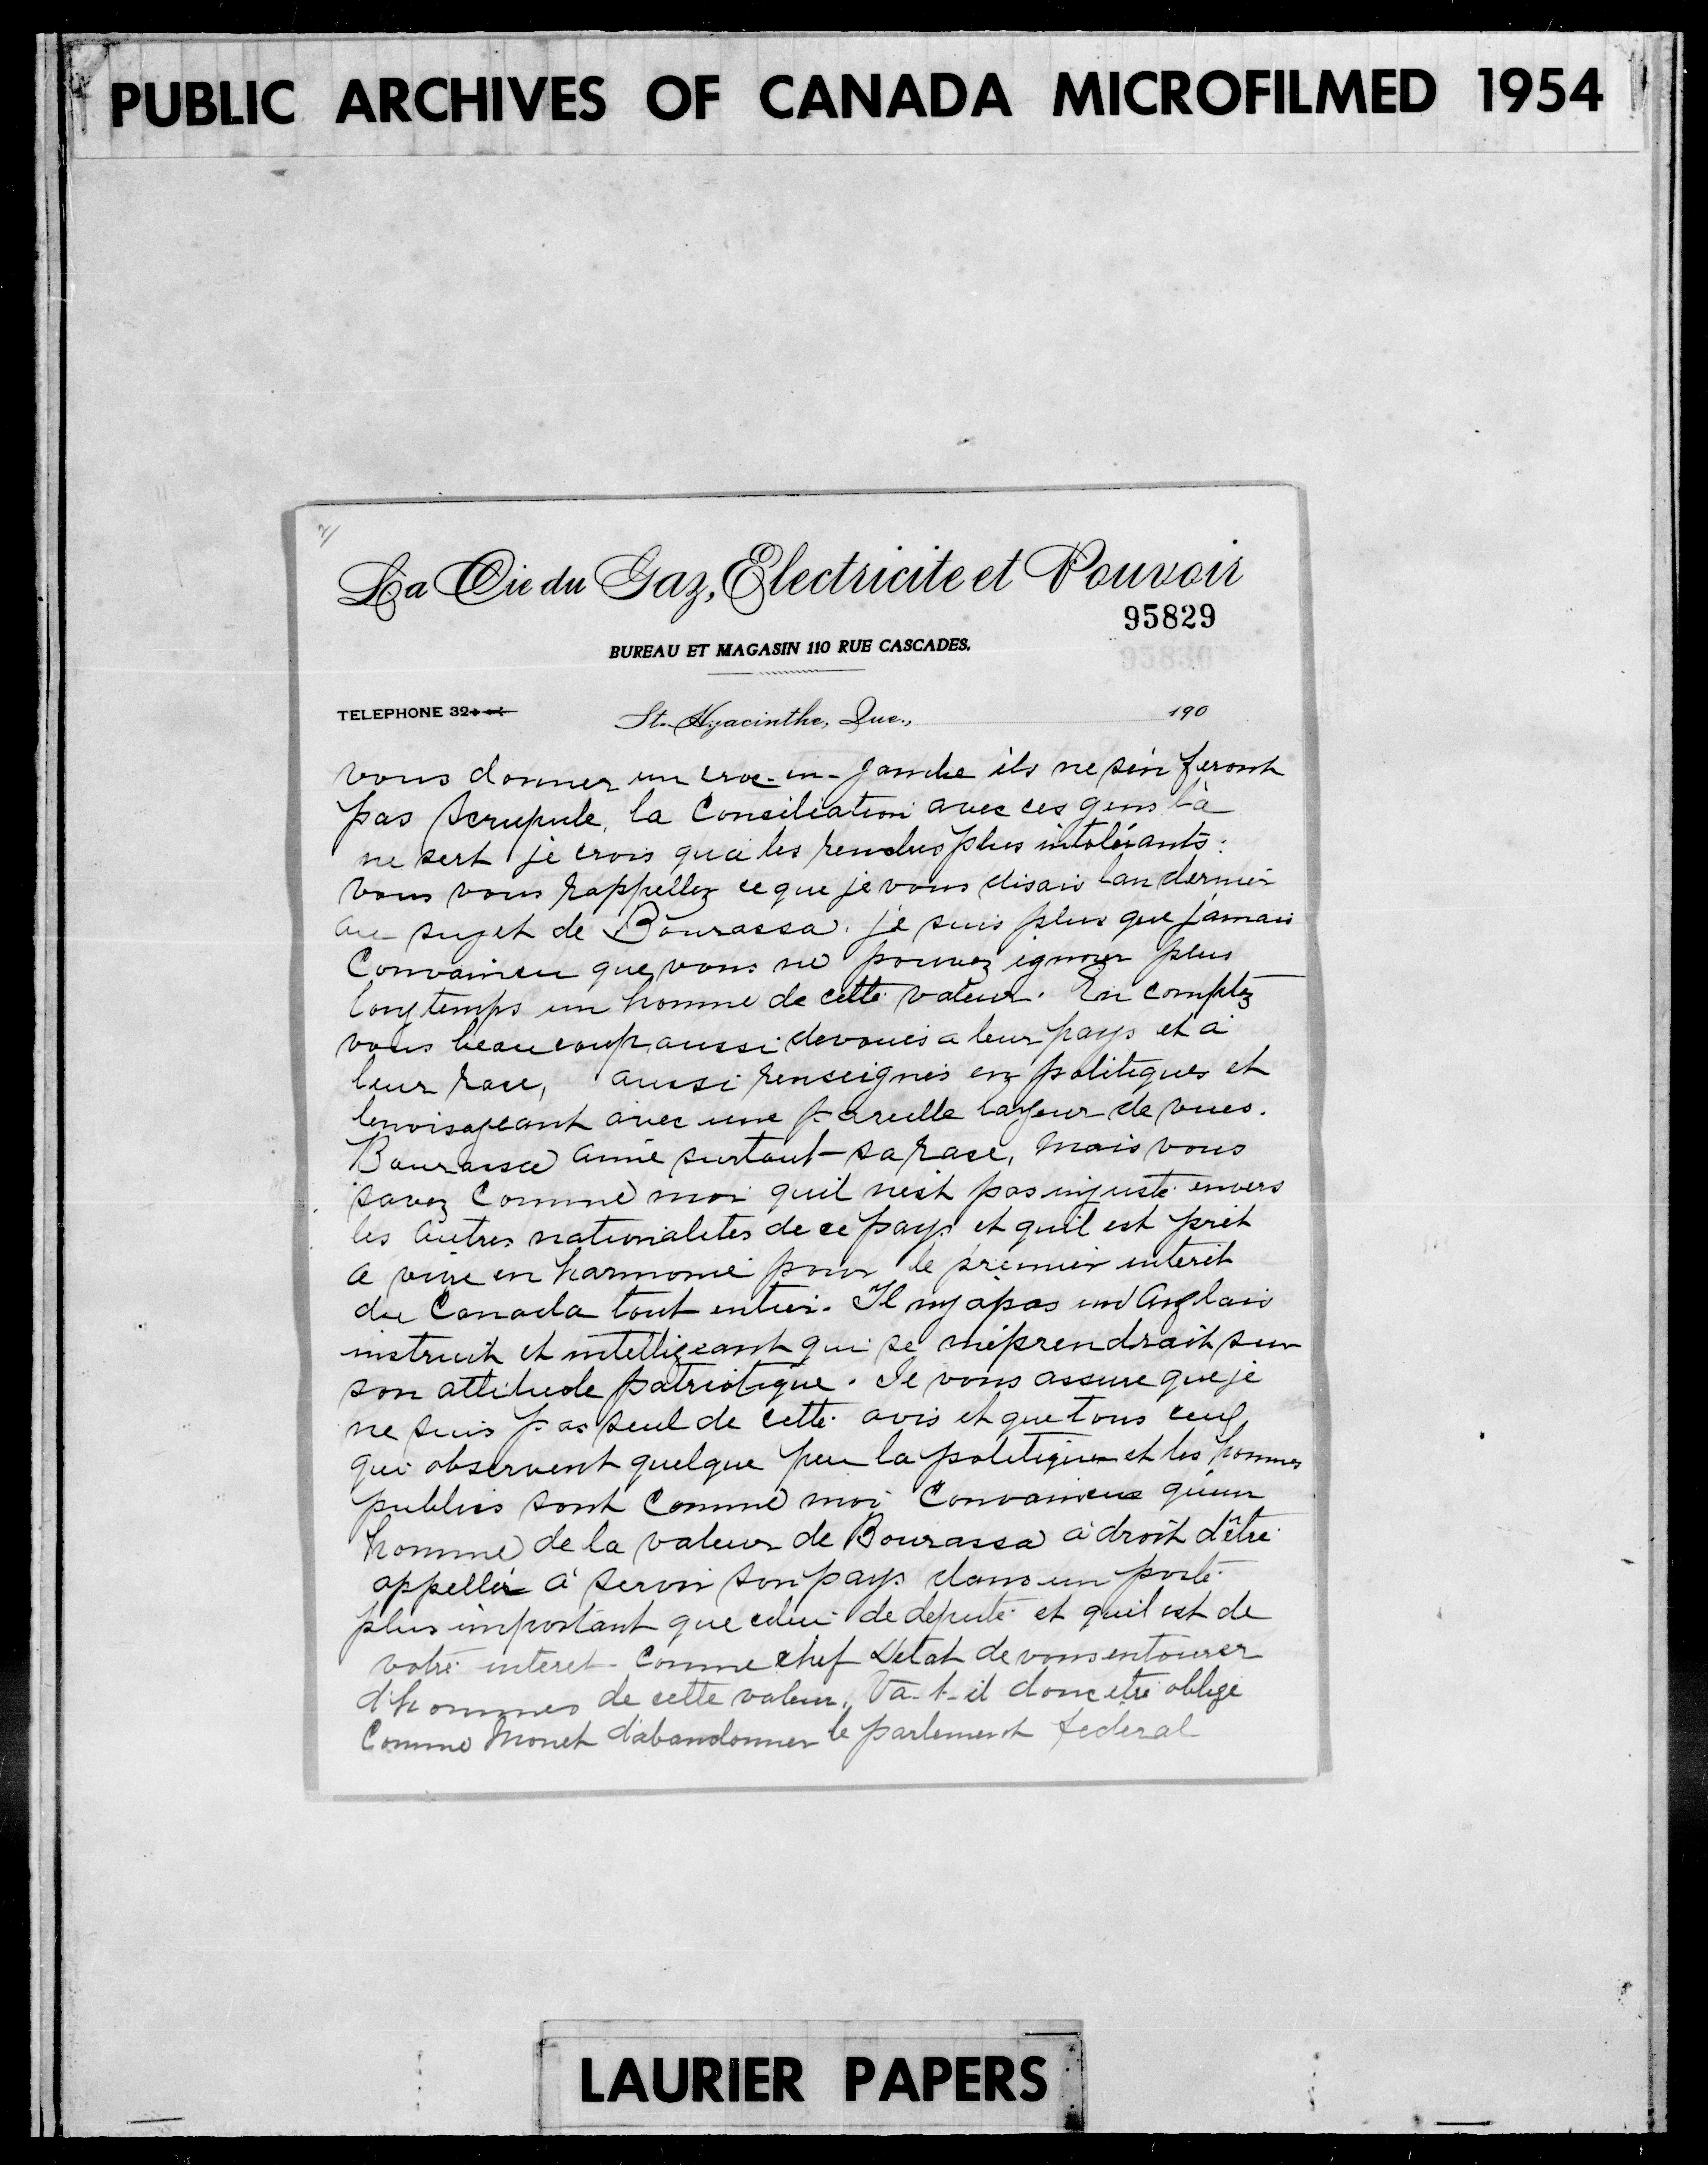 PUBLIC ARCHIVES OF CANADA MICROFILMED 1954
2/
La Cie du Gaz, Electricite et Pouvoir
95829
BUREAU ET MAGASIN 110 RUE CASCADES.
95830
TELEPHONE 32
St. Hyacinthe, Que., 190
vous donner un croc-en-jambe ils ne s'en feront
pas scrupule, la Conciliation avec ces gens là
ne sert je crois qu'a les rendus plus intolérants.
Vous vous rappellez ce que je vous disais l'an dernier
au sujet de Bourassa. je suis plus que jamais
Convaincu que vous ne pouvez ignorer plus
longtemps un homme de cette valeur. En comptez
vous beaucoup aussi devoués a leur pays et à
leur race, aussi renseignés en politiques et
l'envisageant avec une pareille largeur de vues.
Bourassa aime surtout sa race, mais vous
savez Comme moi quil n'est pas injuste envers
les autres nationalités de ce pays et quil est prêt
a vivre en harmonie pour le premier interêt
du Canada tout entier. Il ny a pas un Anglais
instruit et intelligeant qui se méprendrait sur
son attitude patriotique. Je vous assure que je
ne suis pas seul de cette avis et que tous ceux
qui observent quelque peu la politique et les hommes
publics sont Comme moi Convaincus qu'un
homme de la valeur de Bourassa a droit d'être
appellé à servir son pays dans un poste
plus important que celui de deputé et quil est de
votre interet Comme chef d'etat de vous entourer
d'hommes de cette valeur. Va-t-il donc etre obligé
Comme Monet d'abandonner le parlement federal
LAURIER PAPERS